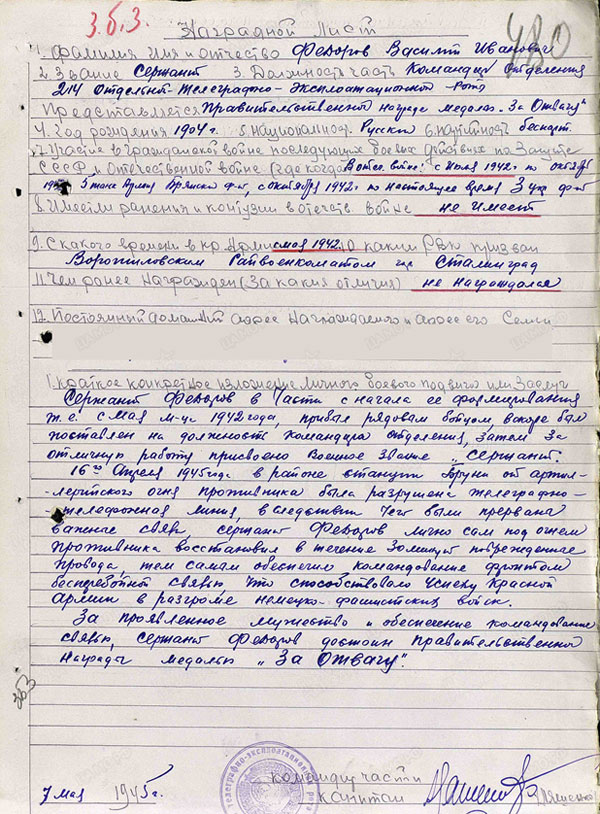 З.б.З.
480
Наградной Лист
1. Фамилия Имя и отчество Федоров Василий Иванович
2. Звание Сержант 3. Должность часть Командир Отделения
214 Отдельной-Телеграфно-Эксплоатационной-Роты
Представляется Правительственной Награде медаль "За Отвагу"
4. Год рождения 1904 г. 5. Национальность Русский 6. Партийность беспарт.
7. Участие в гражданской войне последующих боевых действиях по Защите
СССР и Отечественной войне (где когда) В отеч. войне с Июля 1942 г. по октябрь
5 танк. Армия Брянский фронт, с Октября 1942 г. по настоящее время 3 Укр. фронт
8. Имеет ли ранения и контузии в отечеств. войне не Имеет
9. С какого времени в кр. Армии с мая 1942 10 каким РВК призван
Ворошиловским Райвоенкоматом гор. Сталинград
11. Чем ранее Награжден (За какия отличия) не Награждался
12. Постоянный домашний адрес Награждаемого и адрес его Семьи
I. краткое конкретное изложение личного боевого подвига или Заслуг
Сержант Федоров в Части с начала ее формирования
т.е. с мая м-ца 1942 года, прибыл рядовым бойцом, вскоре был
поставлен на должность командира отделения, затем за
отличную работу присвоено Военное звание "Сержант".
16го Апреля 1945 года в районе станции Бруни от артил-
лерийского огня противника была разрушена телеграфно-
телефонная линия, вследствии чего были прервана
важные связи, сержант Федоров лично сам под огнем
противника восстановил в течение 30 минут поврежденные
провода, тем самым обеспечил командование фронтом
бесперебойной связью что способствовало Успеху Красной
Армии в разгроме немецко-фашистских войск.
За проявленное мужество и обеспечение командование
связью, сержант Федоров достоин правительственной
Награды медалью "За Отвагу".
363
7 мая 1945 г.
командир части
капитан